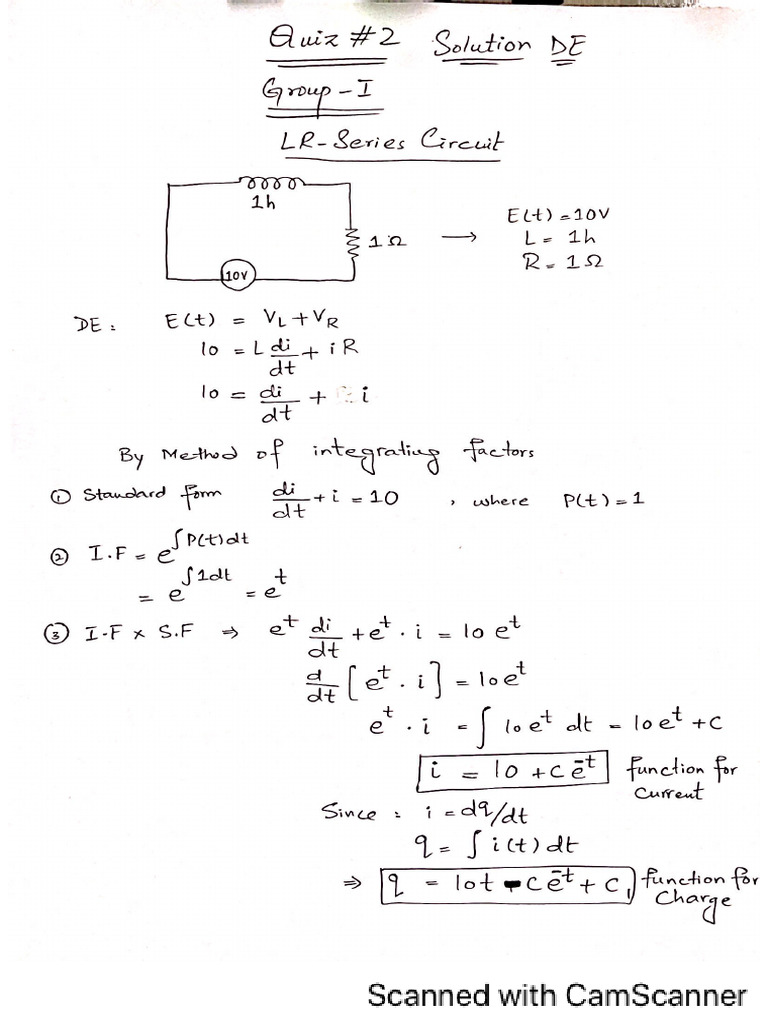 Quiz #2 Solution DE
Group-I
LR-Series Circuit
1h
1Ω
10V
→ E(t) = 10V
L = 1h
R = 1Ω
DE: E(t) = V_L + V_R
10 = L di/dt + iR
10 = di/dt + i
By Method of integrating factors
① Standard form di/dt + i = 10 , where P(t) = 1
② I.F = e^∫P(t)dt
= e^∫1dt = e^t
③ I.F x S.F ⇒ e^t di/dt + e^t · i = 10 e^t
d/dt [e^t · i] = 10e^t
e^t · i = ∫ 10e^t dt = 10e^t + c
i = 10 + ce^-t function for current
Since : i = dq/dt
q = ∫ i(t) dt
⇒ q = 10t - ce^-t + c₁ function for charge
Scanned with CamScanner